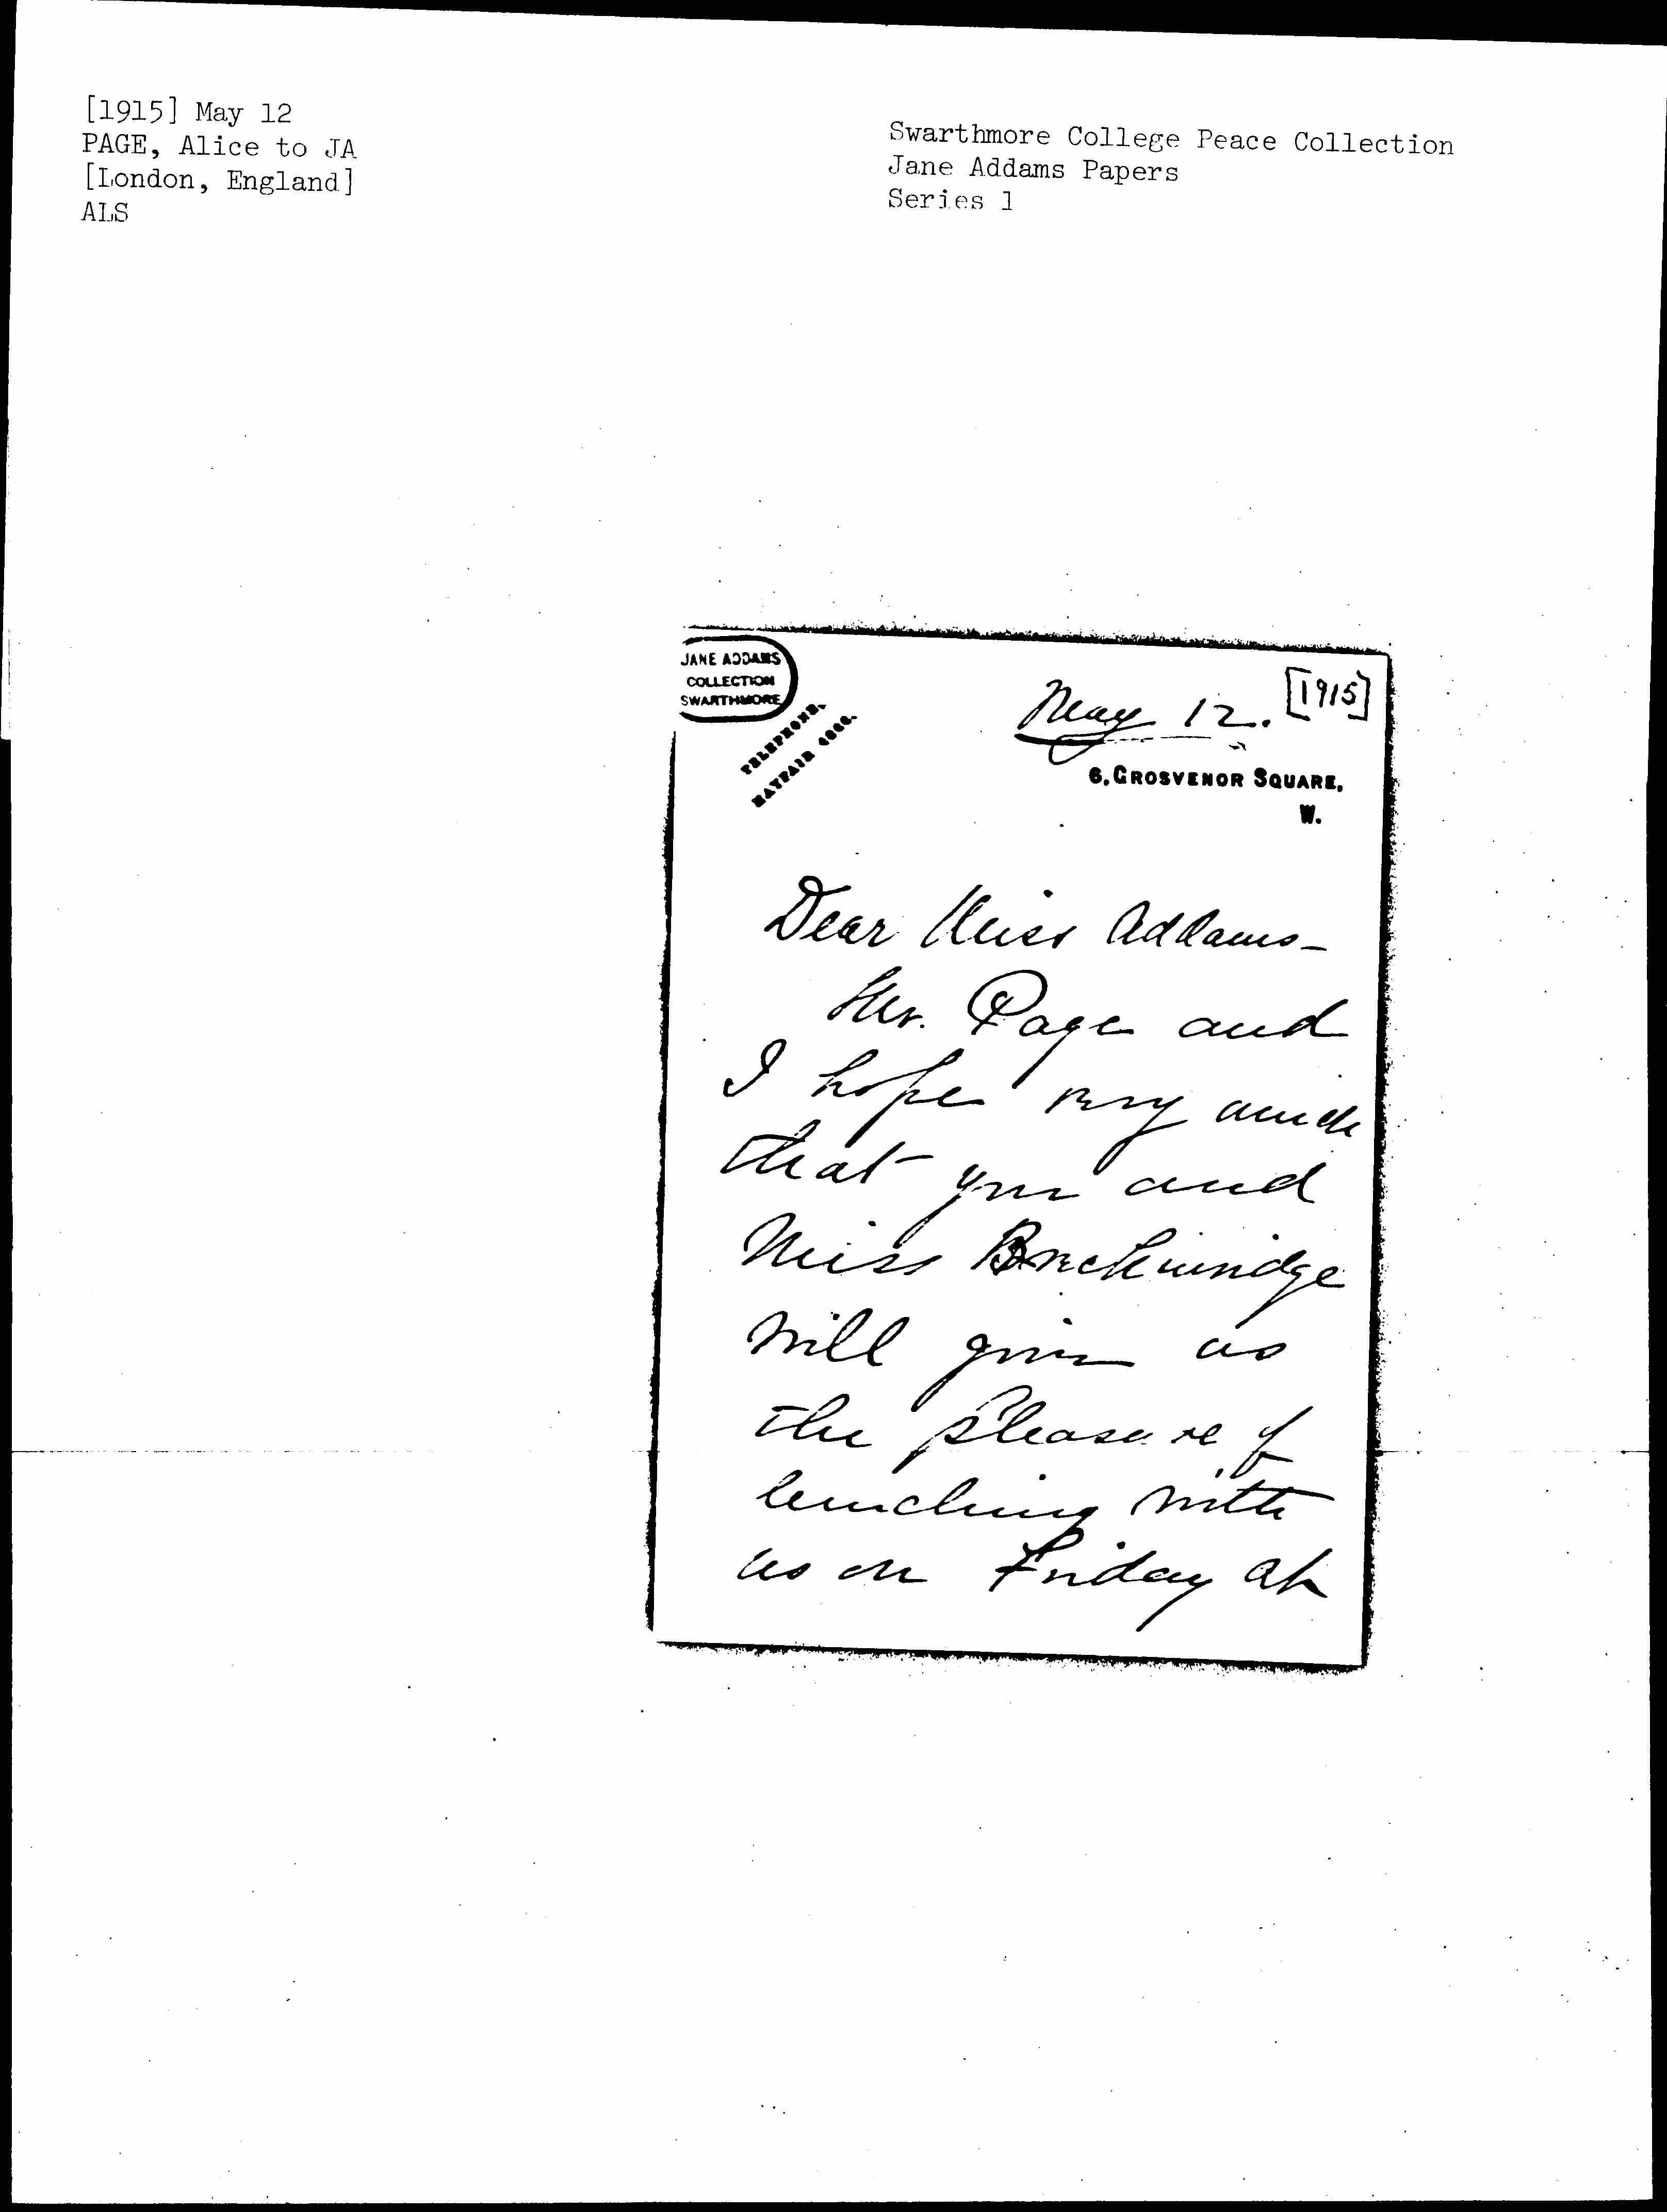 [1915] May 12
PAGE, Alice to JA
[London, England]
ALS
Swarthmore College Peace Collection
Jane Addams Papers
Series 1
JANE ADDAMS
COLLECTION
SWARTHMORE
TELEPHONE,
MAYFAIR
May 12. [1915]
6, GROSVENOR SQUARE,
W.
Dear Miss Addams—
Mr. Page and
I hope very much
that you and
Miss Breckinridge
will give us
the pleasure of
lunching with
us on Friday at